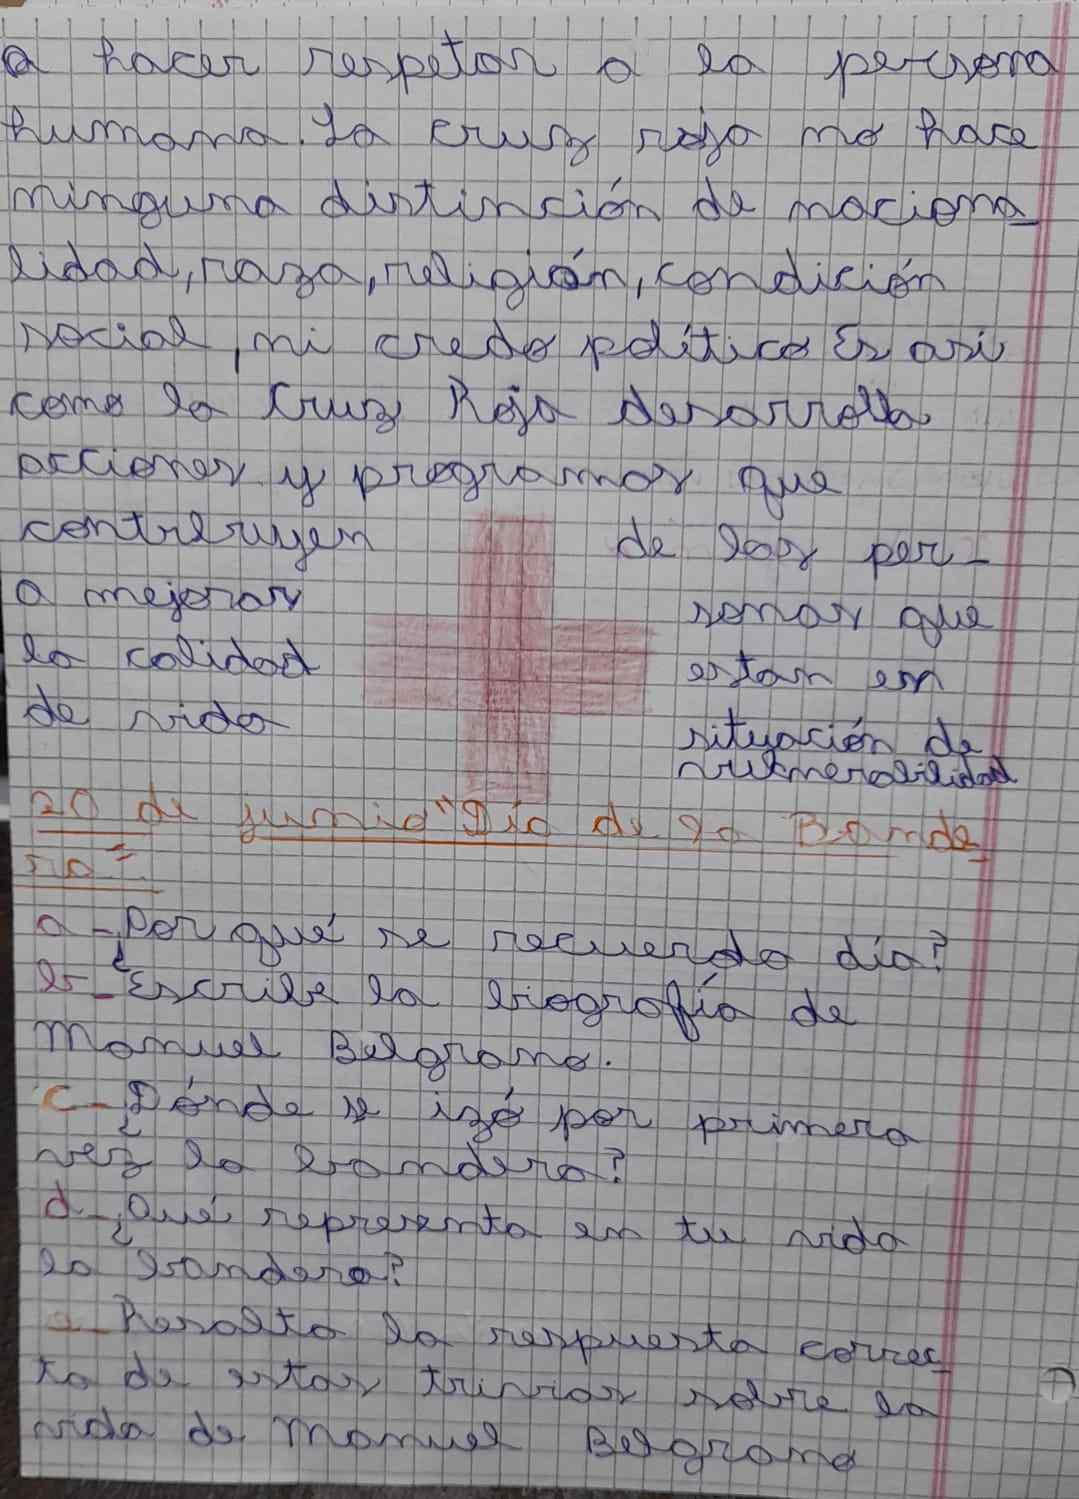 a hacer respetar a la persona
humana. La cruz roja no hace
ninguna distinsión de naciona_
lidad, raza, religión, condición
social, ni credo político Es asi
como la Cruz Roja desarrolla
acciones y programas que
contribuyen
a mejorar
la calidad
de vida
de las per_
sonas que
estan en
situación de
vulnerabilidad
20 de junio "Día de la Bande_
ra".
a-¿Por qué se recuerda día?
b-Escribe la biografía de
Manuel Belgrano.
c-¿Dónde se izó por primera
vez la bandera?
d-¿Qué representa en tu vida
la bandera?
e-Resalta la respuesta correc_
ta de estas trivias sobre la
vida de Manuel Belgrano